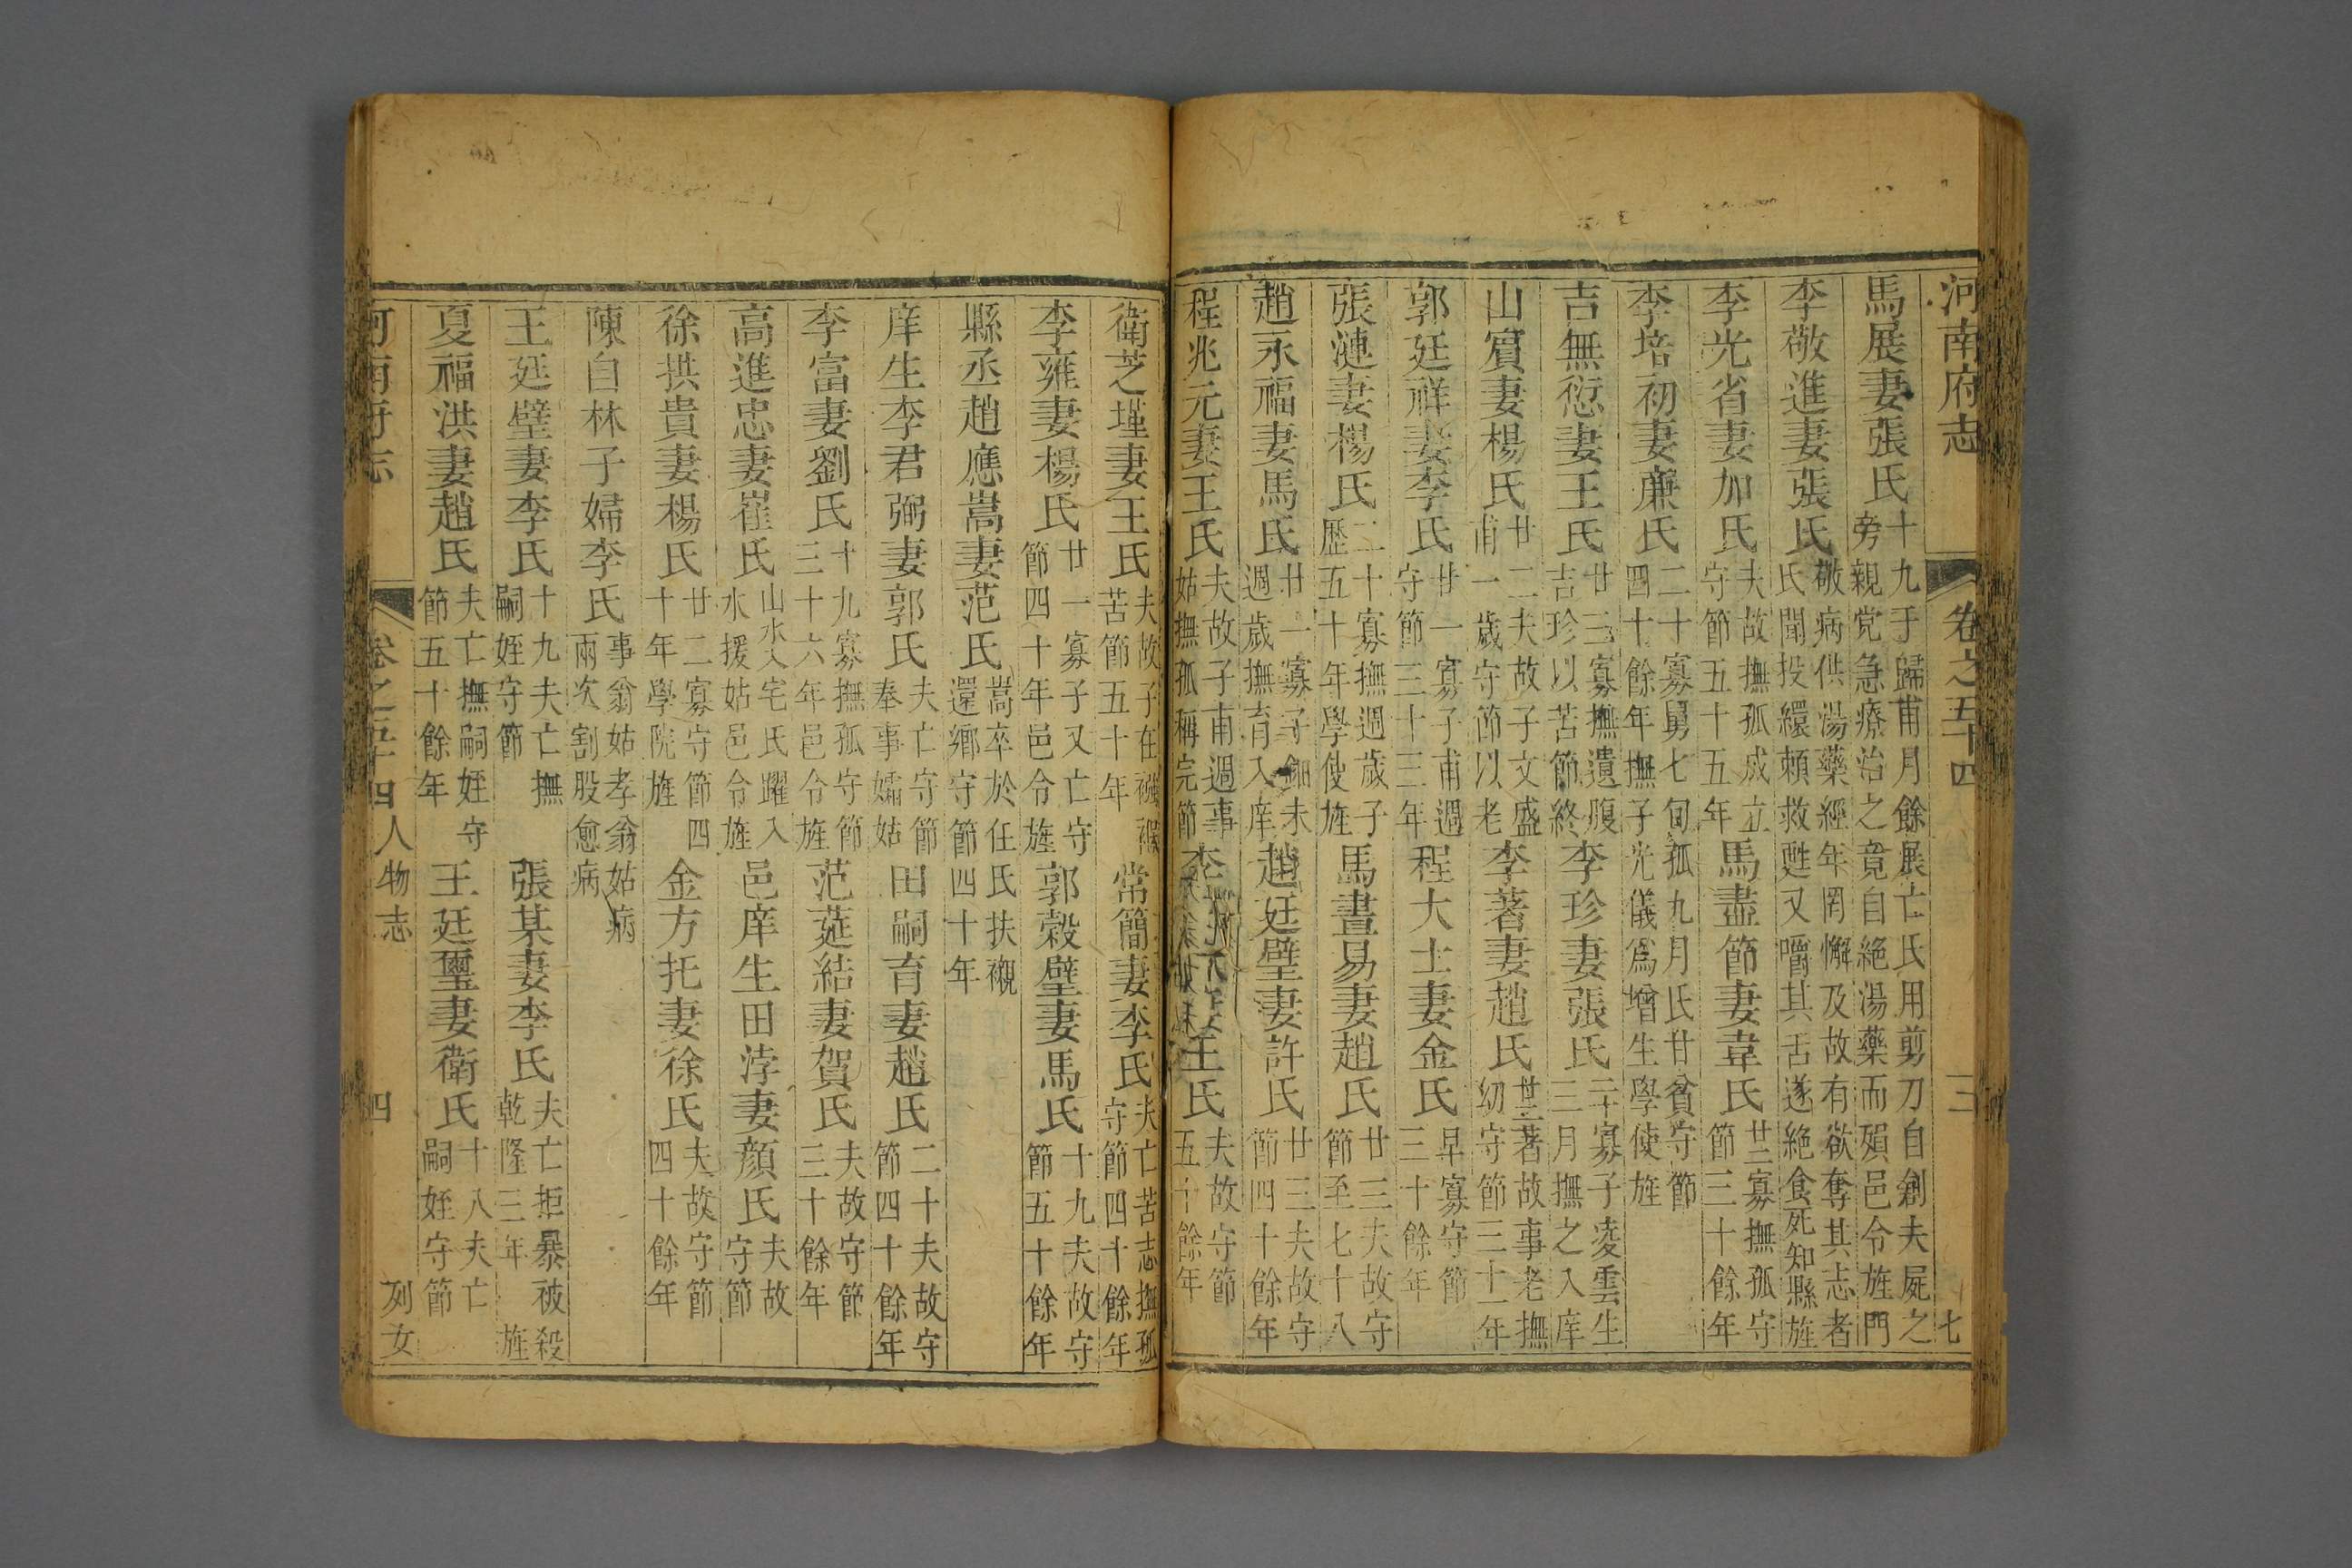 河南府志 卷之五十四 三 七
馬展妻張氏十九于歸甫月餘展亡氏用剪刀自創夫屍之旁親党急療治之竟自絶湯藥而殞邑令旌門
李敬進妻張氏敬病供湯藥經年罔懈及故有欲奪其志者氏聞投繯頼救甦又嚼其舌遂絶食死知縣旌
李光省妻加氏夫故撫孤成立守節五十五年 馬盡節妻韋氏廿三寡撫孤守節三十餘年
李培初妻廉氏二十寡舅七旬孤九月氏甘貧守節四十餘年撫子光儀爲增生學使旌
吉無愆妻王氏廿三寡撫遺腹吉珍以苦節終 李珍妻張氏二十寡子凌雲生三月撫之入庠
山賔妻楊氏廿二夫故子文盛甫一歲守節以老 李著妻趙氏廿三著故事老撫幼守節三十一年
郭廷祥妻李氏廿一寡子甫週守節三十三年 程大士妻金氏早寡守節三十餘年
張漣妻楊氏二十寡撫週歲子歷五十年學使旌 馬晝易妻趙氏廿三夫故守節至七十八
趙永福妻馬氏廿一寡子鈿未週歲撫育入庠 趙廷璧妻許氏廿三夫故守節四十餘年
程兆元妻王氏夫故子甫週事姑撫孤稱完節 王氏夫故守節五十餘年
衛芝墐妻王氏夫故子在襁褓苦節五十年 常簡妻李氏夫亡苦志撫孤守節四十餘年
李雍妻楊氏廿一寡子又亡守節四十年邑令旌 郭穀璧妻馬氏十九夫故守節五十餘年
縣丞趙應嵩妻范氏嵩卒於任氏扶襯還鄉守節四十年
庠生李君弼妻郭氏夫亡守節奉事孀姑 田嗣育妻趙氏二十夫故守節四十餘年
李富妻劉氏十九寡撫孤守節三十六年邑令旌 范莚結妻賀氏夫故守節三十餘年
高進忠妻崔氏山水入宅氏躍入水援姑邑令旌 邑庠生田浡妻顏氏夫故守節
徐拱貴妻楊氏廿二寡守節四十年學院旌 金方托妻徐氏夫故守節四十餘年
陳自林子婦李氏事翁姑孝翁姑病兩次割股愈病
王廷璧妻李氏十九夫亡撫嗣姪守節 張某妻李氏夫亡拒暴被殺乾隆三年旌
夏福洪妻趙氏夫亡撫嗣姪守節五十餘年 王廷璽妻衛氏十八夫亡嗣姪守節
河南府志 卷之五十四 人物志 四 列女